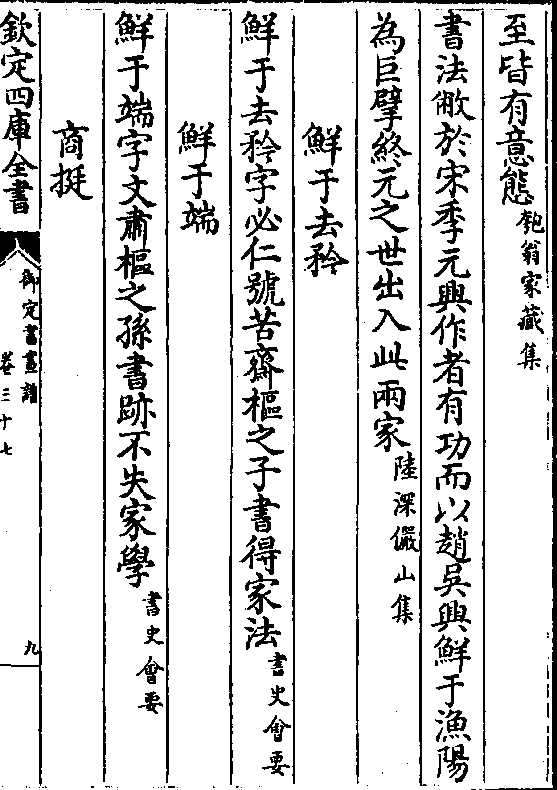 至皆有意態匏翁家藏集
書法敝於宋季元興作者有功而以趙吳興鮮于漁陽
為巨擘終元之世出入此兩家陸深儼山集
鮮于去矜
鮮于去矜字必仁號苦齋樞之子書得家法書史會要
鮮于端
鮮于端字文肅樞之孫書跡不失家學書史會要
商挺
欽定四庫全書
御定書畫譜
卷三十七
九